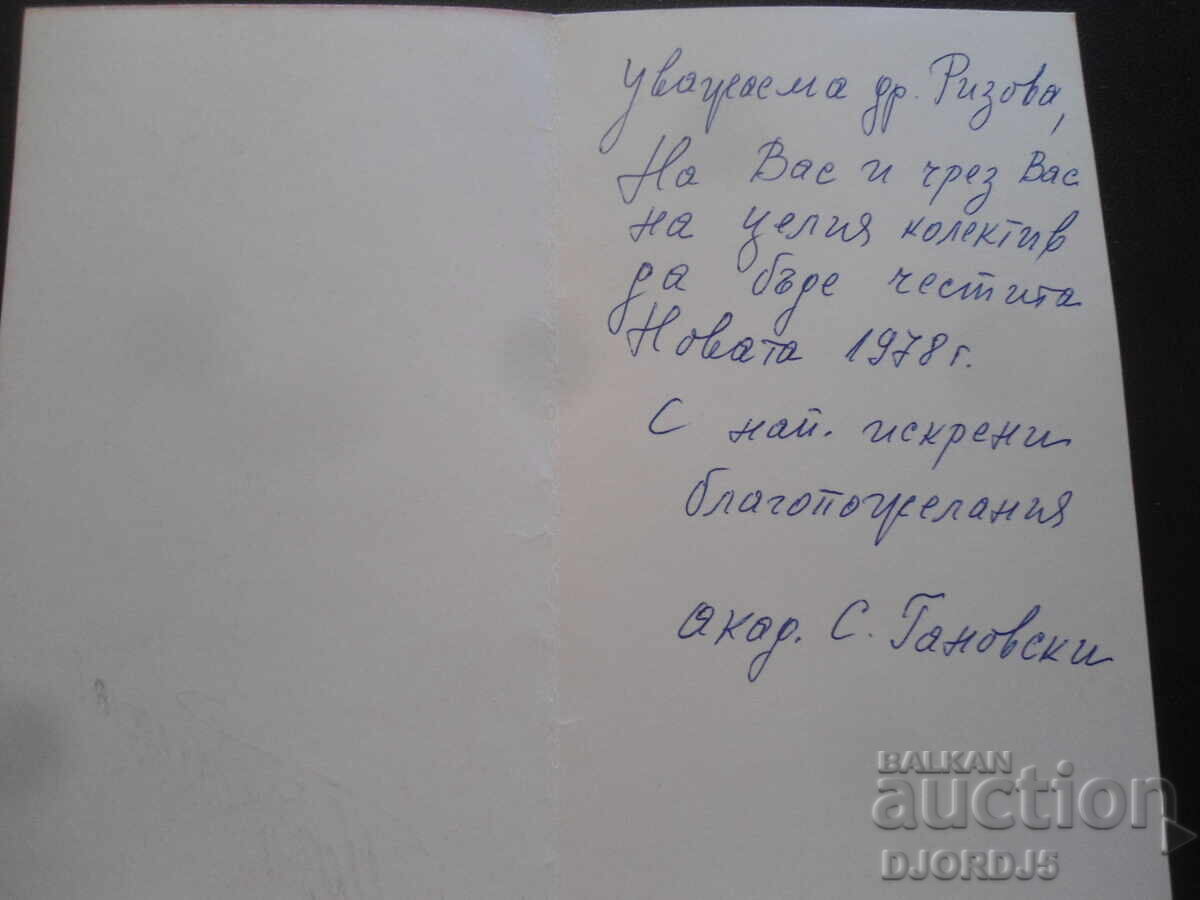 Уважаема др. Ризова,
На Вас и чрез Вас
на целия колектив
да бъде честита
Новата 1978 г.
С най. искрени
благопожелания
акад. С. Гановски
BALKAN
auction
DJORDJ5